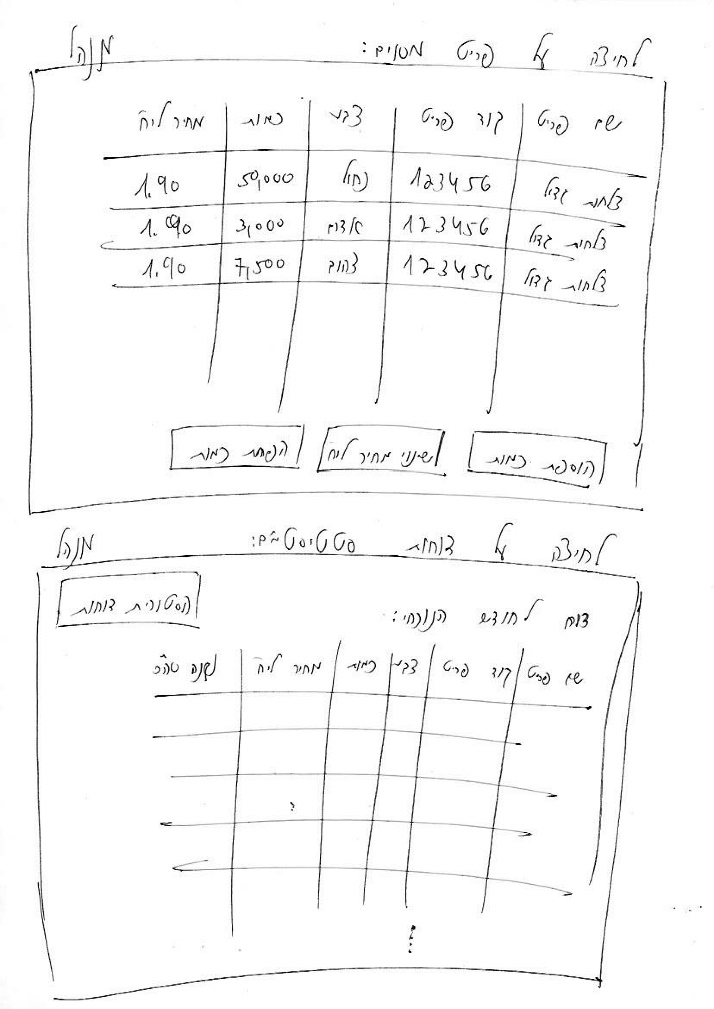 לחיצה על פריט מסוים: מנהל
שם פריט קוד פריט צבע כמות מחיר ליח'
צלחת גדול 123456 כחול 50,000 1.90
צלחת גדול 123456 אדום 3,000 1.90
צלחת גדול 123456 צהוב 7,500 1.90
הוספת כמות שינוי מחיר ליח' הפחתת כמות
לחיצה על דוחות סטטיסטים: מנהל
היסטורית דוחות
דוח לחודש הנוכחי:
שם פריט קוד פריט צבע כמות מחיר ליח' נקנה סה"כ